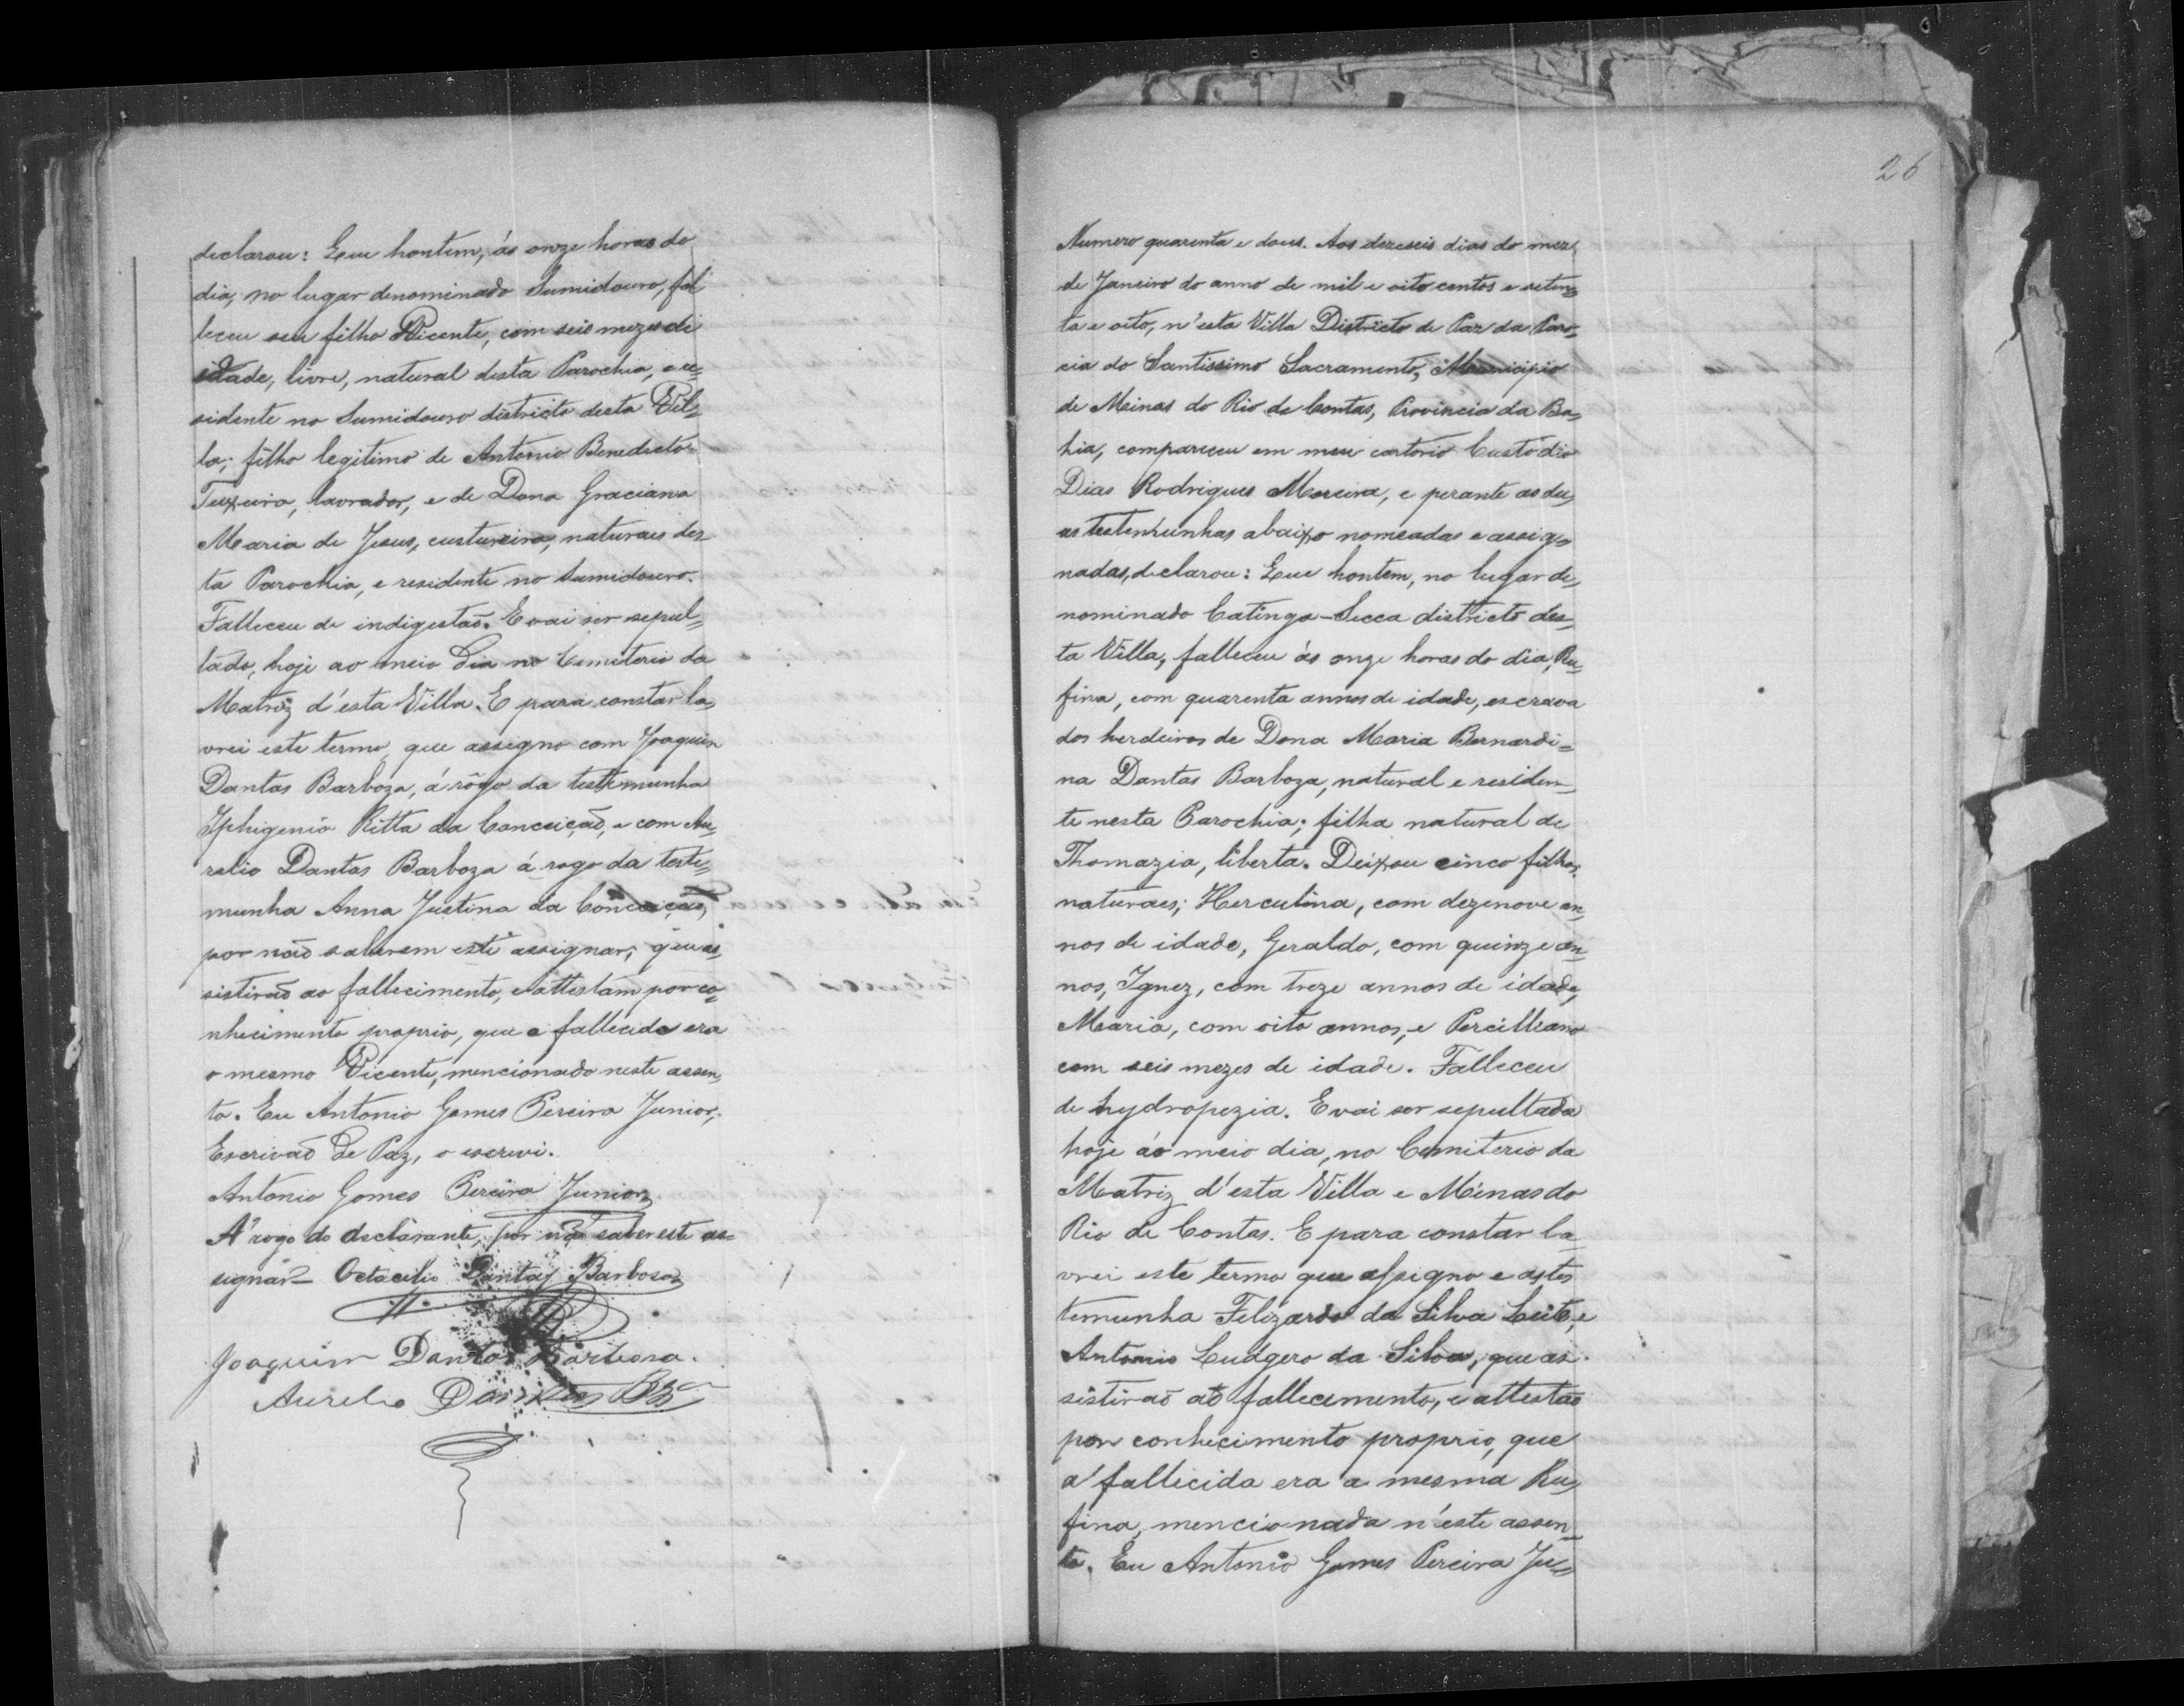 declarou: Que hontem, ás onze horas do
dia, no lugar denominado Sumidouro, fal
leceu seu filho Vicente, com seis mezes de
idade, livre, natural desta Parochia, e re=
sidente no Sumidouro districto desta Vil=
la; filho legitimo de Antonio Benedicto
Teixeira, lavrador, e de Dona Graciana
Maria de Jesus, custureira, naturaes des
ta Parochia, e residente no Sumidouro.
Falleceu de indigestão. E vai ser sepul=
tado, hoje ao meio dia no Cemiterio da
Matriz d'esta Villa. E para constar la=
vrei este termo, que assigno com Joaquim
Dantas Barboza, á rôgo da testemunha
Iphigenia Ritta da Conceição, e com Au=
relio Dantas Barboza á rogo da teste=
munha Anna Justina da Conceição,
por não saberem este assignar; que as=
sistirão ao fallecimento, e attestam por co=
nhecimento proprio, que o fallecido era
o mesmo Vicente, mencionado neste assen=
to. Eu Antonio Gomes Pereira Junior,
Escrivão de Paz, o escrevi.
Antonio Gomes Pereira Junior
A' rogo do declarante, por não saber este as=
signar— Octacilio Dantas Barbosa
Joaquim Dantas Barbosa.
Aurelio Dantas Bza
26
Numero quarenta e dous. Aos dezeseis dias do mez
de Janeiro do anno de mil e oito centos e seten=
ta e oito, n'esta Villa Districto de Paz da Paro=
cia do Santissimo Sacramento, Municipio
de Minas do Rio de Contas, Provincia da Ba=
hia, compareceu em meu cartorio Custodio
Dias Rodrigues Moreira, e perante as du=
as testemunhas abaixo nomeadas e assig=
nadas, declarou: Que hontem, no lugar de=
nominado Catinga-Secca districto des=
ta Villa, falleceu ás onze horas do dia, Ru=
fina, com quarenta annos de idade, escrava
dos herdeiros de Dona Maria Bernardi=
na Dantas Barboza, natural e residen=
te nesta Parochia; filha natural de
Thomazia, liberta. Deixou cinco filhos
naturaes; Herculina, com dezenove an=
nos de idade, Geraldo, com quinze an=
nos, Ignez, com treze annos de idade,
Maria, com oito annos, e Percilliano
com seis mezes de idade. Falleceu
de hydropezia. E vai ser sepultada
hoje ás meio dia, no Cemiterio da
Matriz d'esta Villa e Minas do
Rio de Contas. E para constar la=
vrei este termo que assigno e as tes
temunha Felizardo da Silva Leite, e
Antonio Ludgero da Silva, que as
sistirão ao fallecimento, e attestão
por conhecimento proprio, que
a fallecida era a mesma Ru=
fina, mencionada n'este assen=
to. Eu Antonio Gomes Pereira Ju=